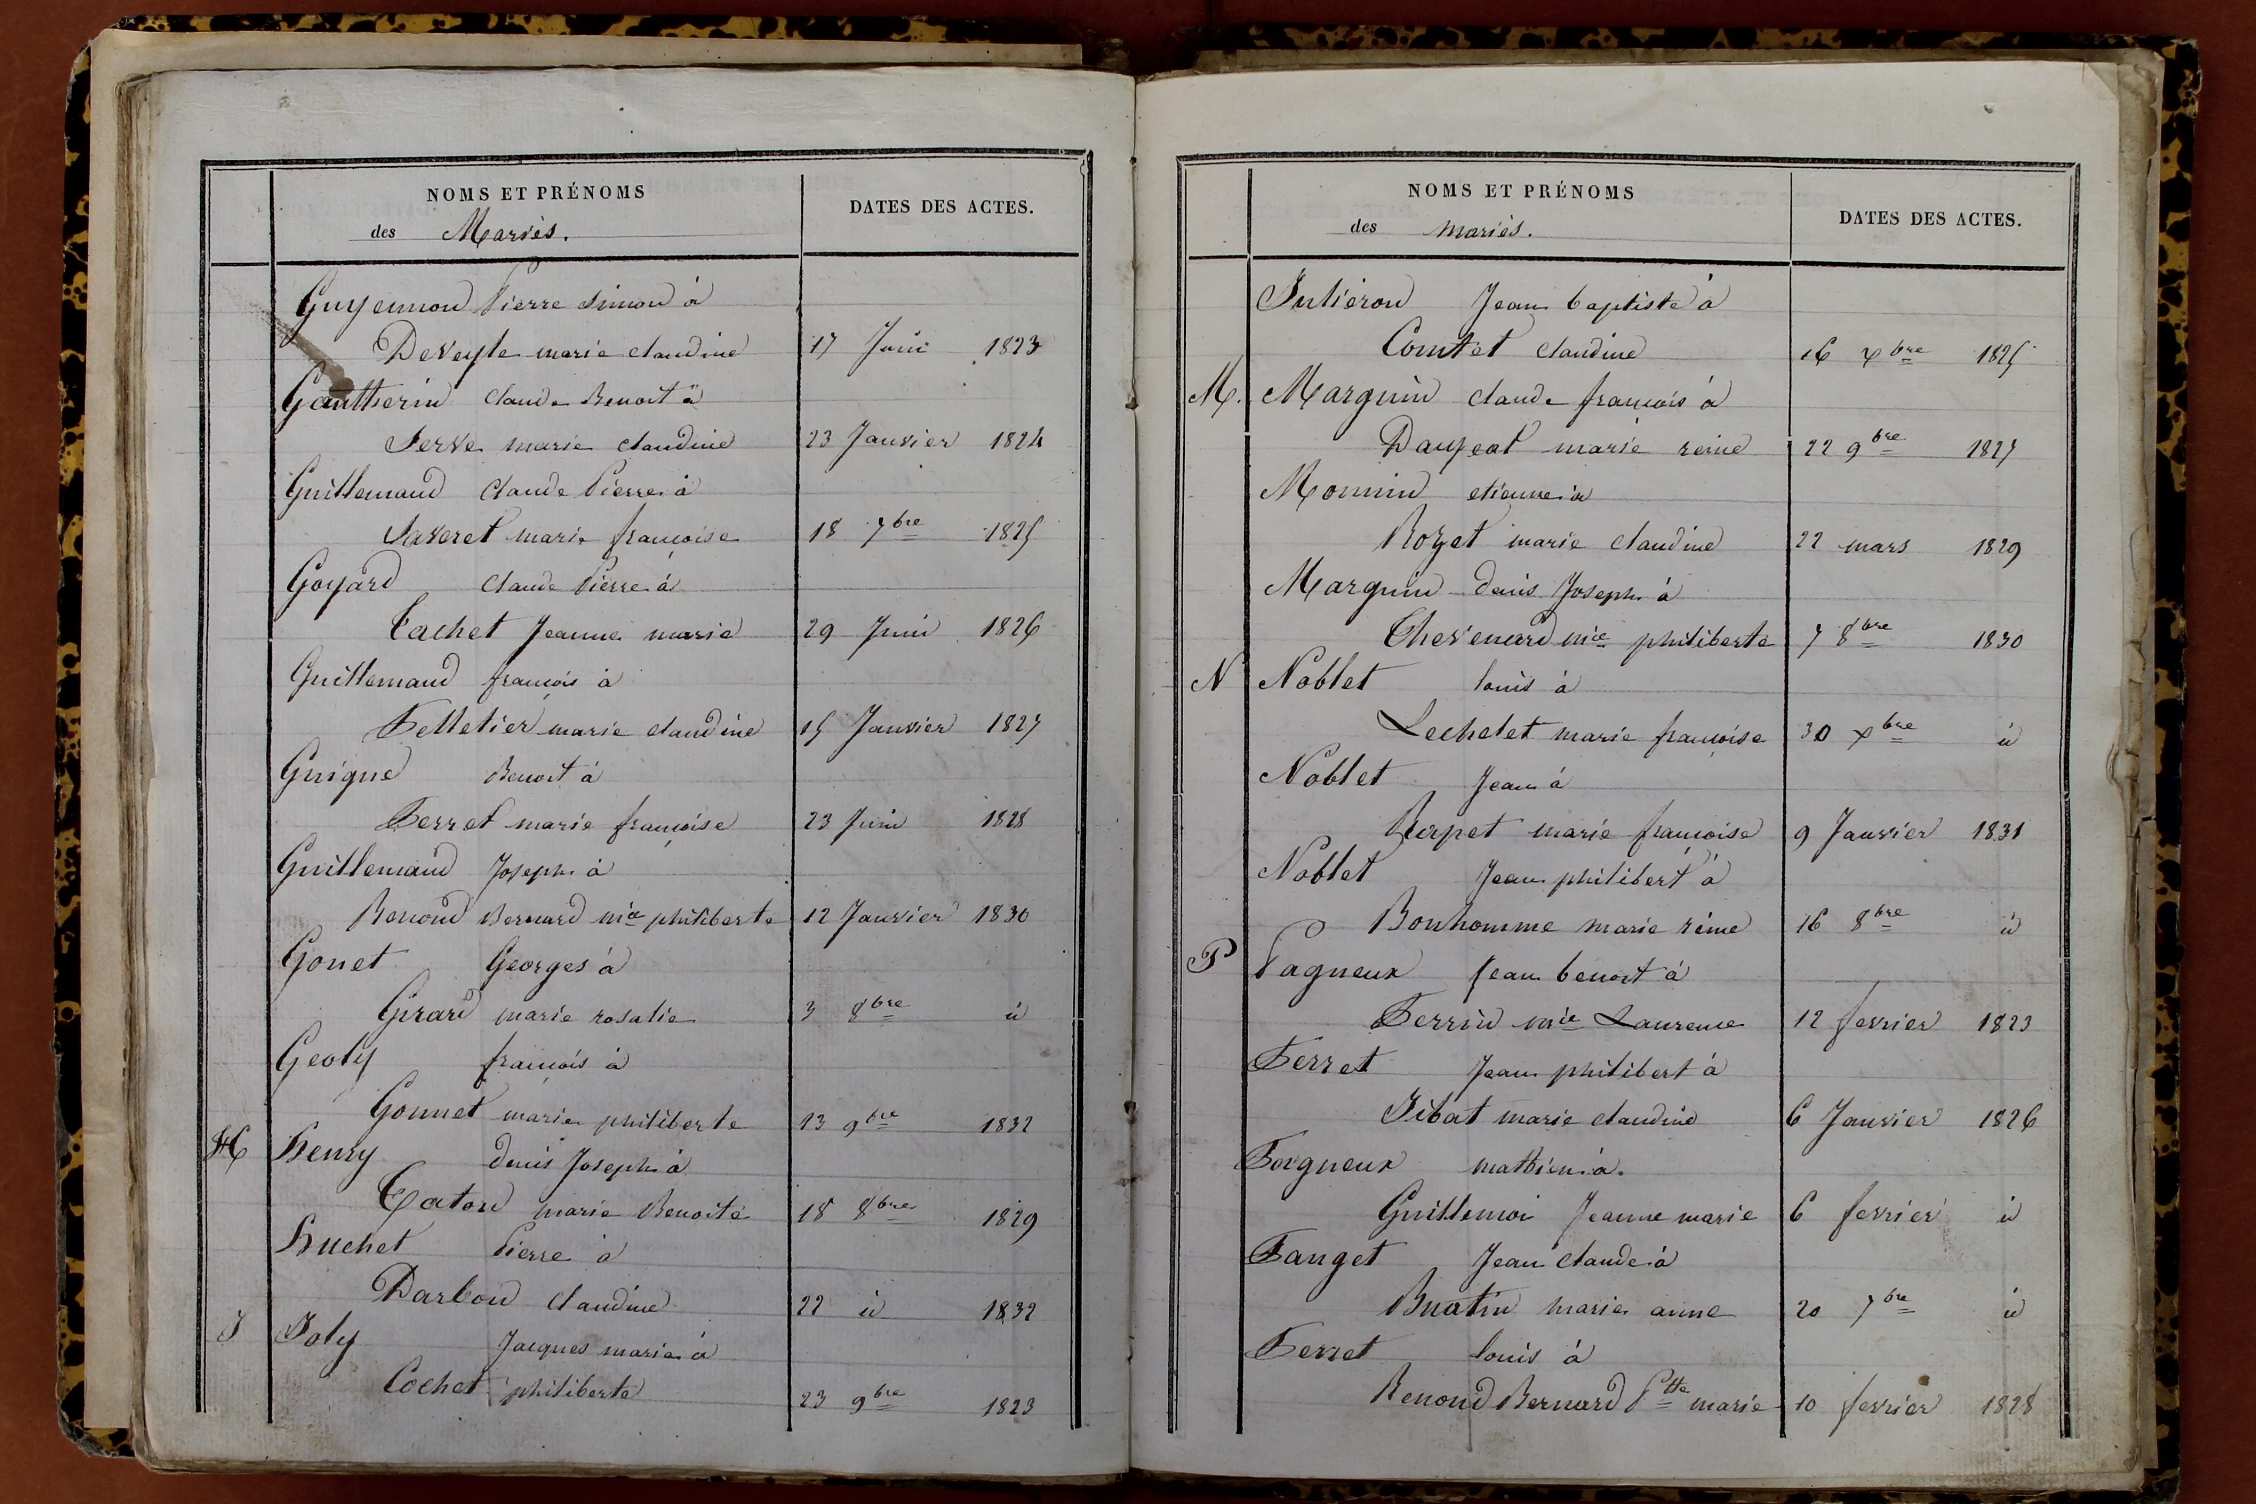 NOMS ET PRÉNOMS
des Mariés.
DATES DES ACTES.
Guyennon Pierre Simon à
Deveyle marie claudine 17 Juin 1823
Gautherin Claude Benoit à
Serve marie claudine 23 Janvier 1824
Guillemaud Claude Pierre à
Saveret marie françoise 18 7bre 1825
Goyard Claude Pierre à
Tachet Jeanne marie 29 Juin 1826
Guillemaud françois à
Pelletier marie claudine 15 Janvier 1827
Guigue Benoit à
Perret marie françoise 23 Juin 1828
Guillemaud Joseph à
Renoud Bernard mie philiberte 12 Janvier 1830
Gonet Georges à
Girard marie rosalie 3 8bre id
Geoly françois à
Gonnet marie philiberte 13 9bre 1832
H Henry denis Joseph à
Caton marie Benoite 18 8bre 1829
Huchet Pierre à
Darbon claudine 22 id 1832
J Joly Jacques marie à
Cochet philiberte 23 9bre 1823
NOMS ET PRÉNOMS
des mariés.
DATES DES ACTES.
Juliéron Jean baptiste à
Comtet claudine 16 xbre 1825
M. Marguin claude françois à
Daujeat marie reine 22 9bre 1827
Monnin etienne à
Rozet marie claudine 22 mars 1829
Marguin denis Joseph à
Chevenard mie philiberte 7 8bre 1830
N Noblet louis à
Lechelet marie françoise 30 xbre id
Noblet Jean à
Burpet marie françoise 9 Janvier 1831
Noblet Jean philibert à
Bonhomme marie reine 16 8bre id
P Pagneux Jean benoit à
Perrin mie Laurence 12 fevrier 1823
Perret Jean philibert à
Jibat marie claudine 6 Janvier 1826
Porgneux mathieu à
Guillemoi Jeanne marie 6 fevrier id
Panget Jean claude à
Buatin marie anne 20 7bre id
Perret louis à
Renoud Bernard Ptte marie 10 fevrier 1828